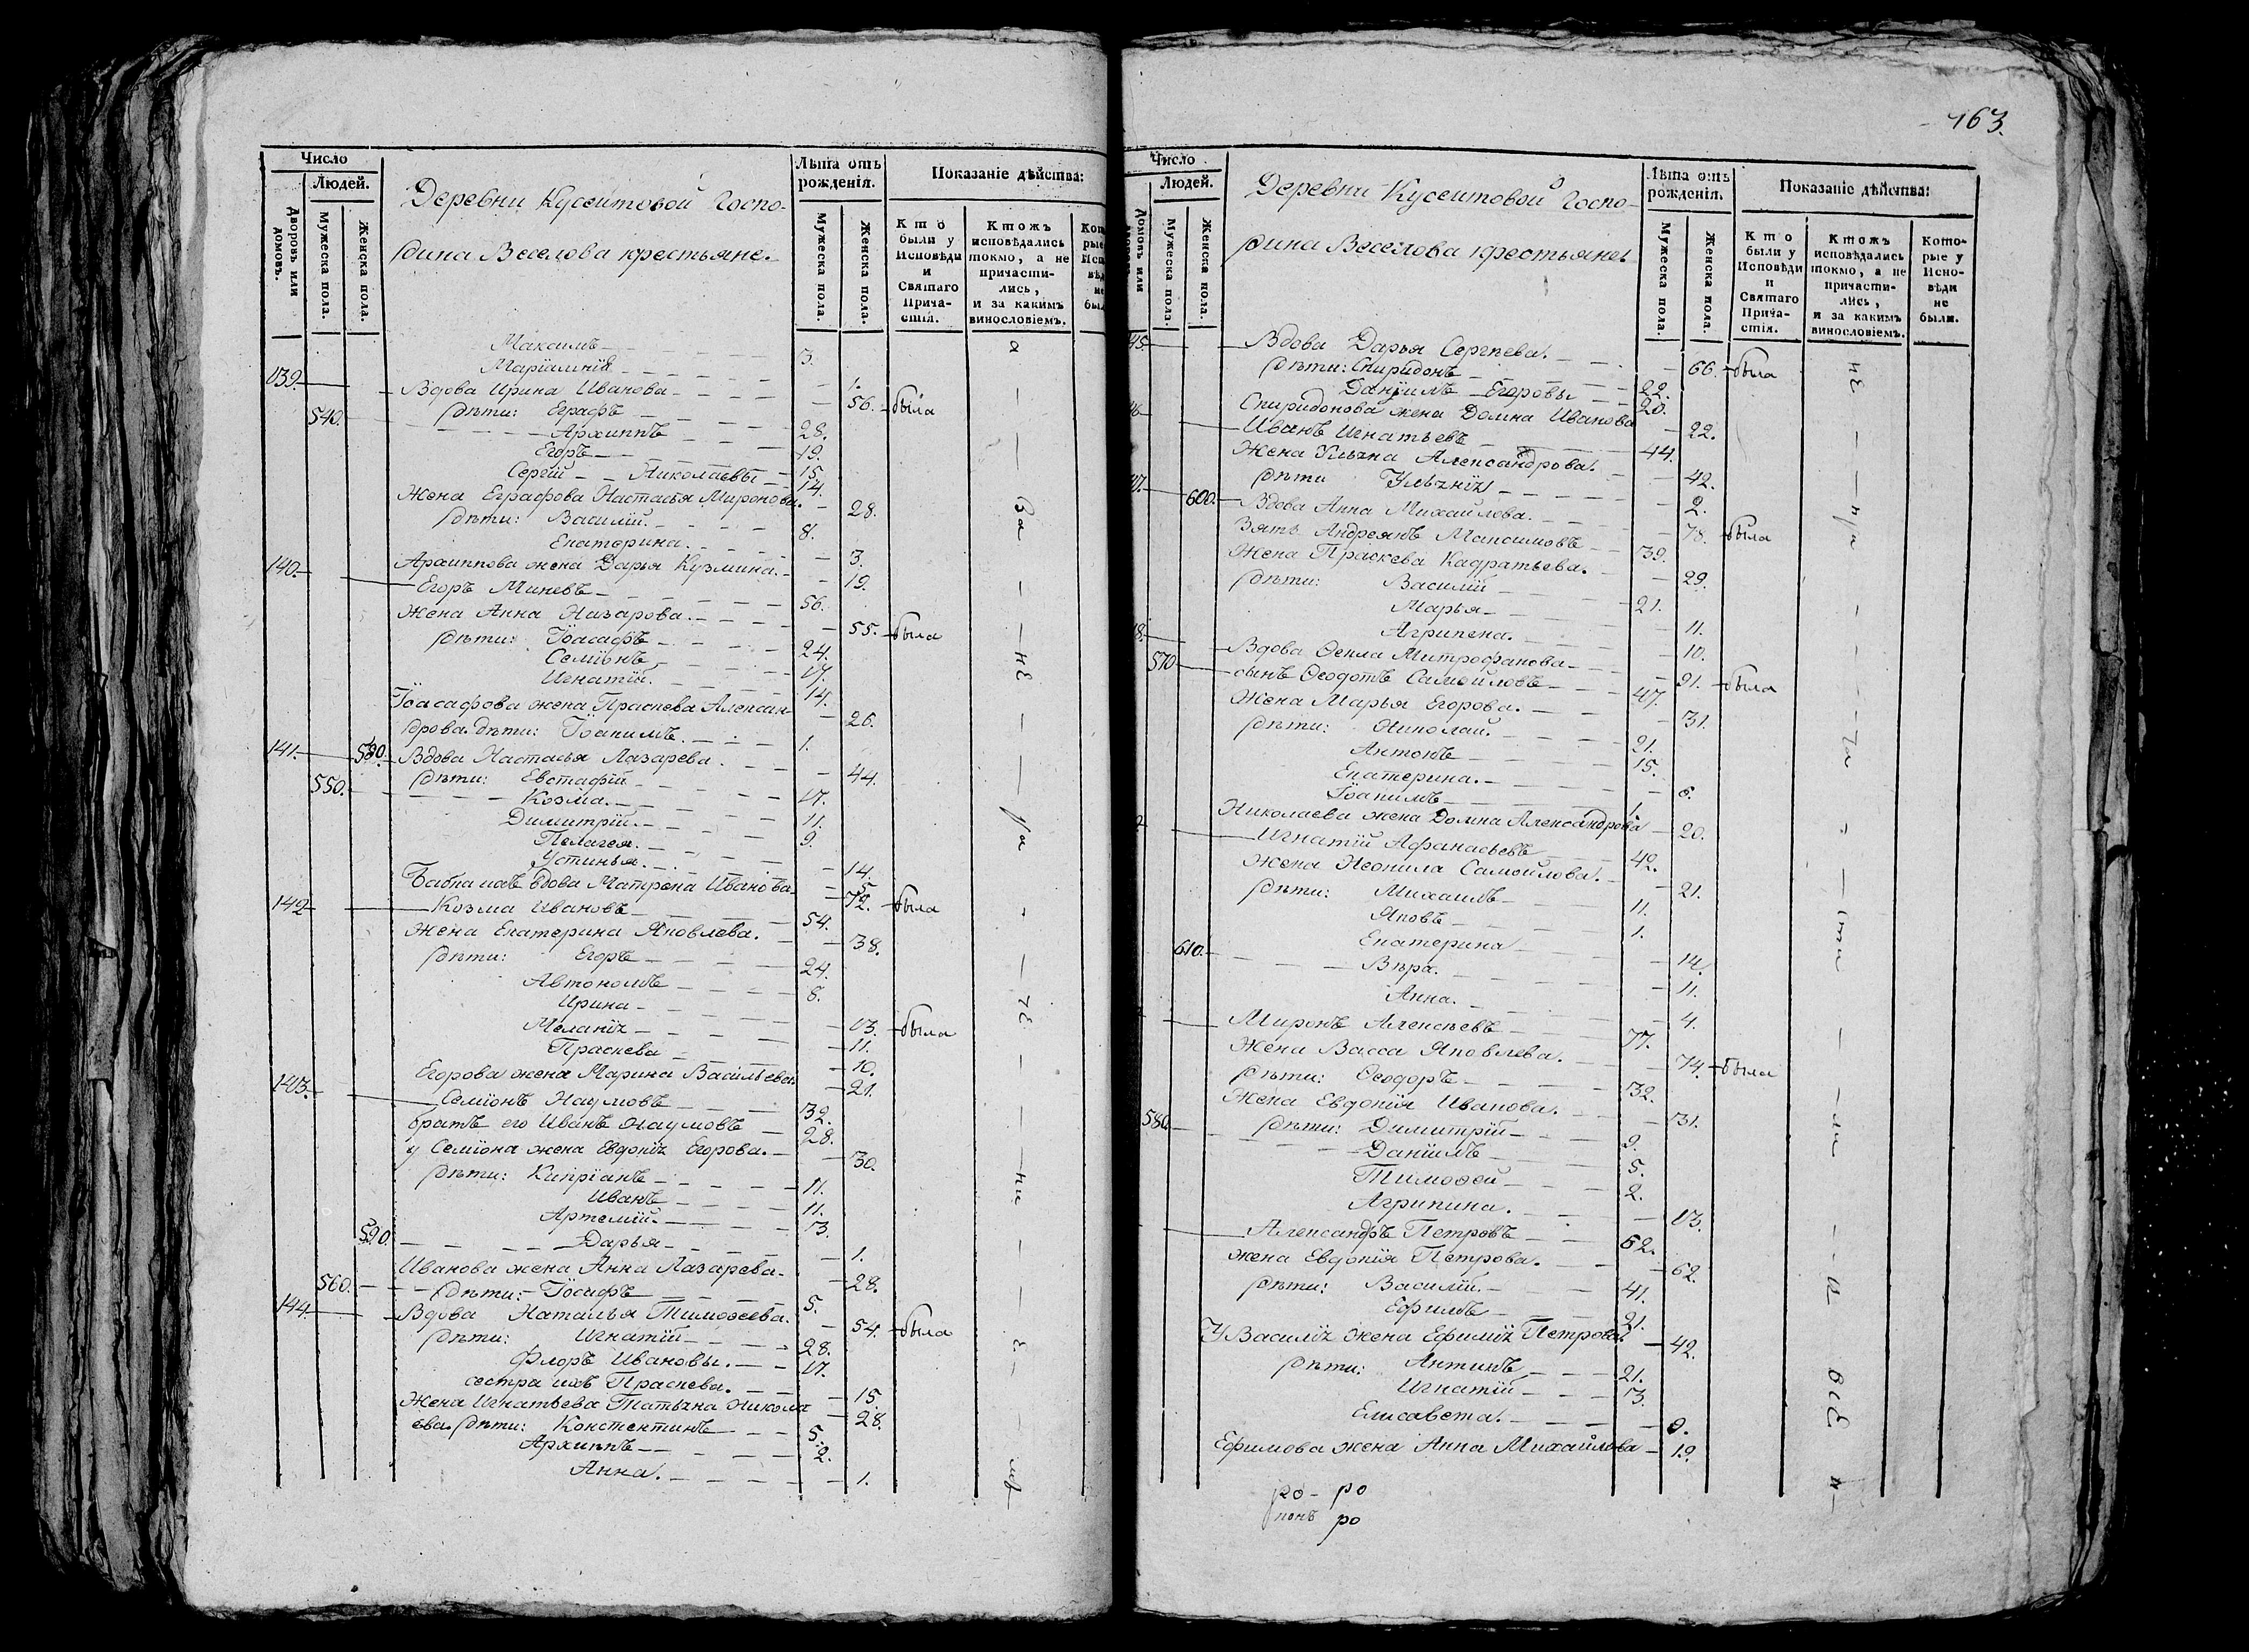 163.
Число
Людей.
Дворовъ или домовъ.
Мужеска пола.
Женска пола.
Деревни Кусеитовой Госпо-
дина Веселова крестьяне.
Лѣта отъ рожденія.
Мужеска пола.
Женска пола.
Показаніе дѣйства:
Кто были у Исповѣди и Святаго Причастія.
Ктожъ исповѣдались токмо, а не причастились, и за какимъ винословіемъ.
Максимъ 3.
Маріамнія 1.
139. Вдова Ирина Иванова 56. была
540. дѣти: Еграфъ 28.
Архиппъ 19.
Егоръ 15.
Сергій Николаевы 14.
Жена Еграфова Настасья Миронова. 28.
дѣти: Василій. 8.
Екатерина. 3.
Архиппова жена Дарья Кузмина. 19.
140. Егоръ Миневъ 56.
Жена Анна Назарова. 55. была
дѣти: Іоасафъ 24.
Семіонъ 17.
Игнатій. 14.
Іоасафова жена Праскева Алексан- 26.
дрова. дѣти: Іоакимъ. 1.
141. 580. Вдова Настасья Лазарева. 44.
550. дѣти: Евстафій 17.
Козма. 11.
Димитрій. 9.
Пелагея. 14.
Устинья. 5.
Бабка ихъ вдова Матрона Иванова 72. была
142. Козма Ивановъ 54.
Жена Екатерина Яковлева. 38.
дѣти: Егоръ 24.
Автономъ 8.
Ирина 13. была
Меланія 11.
Праскева 10.
Егорова жена Марина Васильева 21.
143. Семіонъ Наумовъ 32.
братъ его Иванъ Наумовъ 28.
у Семіона жена Евдокія Егорова. 30.
дѣти: Кипріанъ 11.
Иванъ 11.
Артемій. 3.
590. Дарья 1.
Иванова жена Анна Лазарева. 28.
560. дѣти: Іосифъ 5.
144. Вдова Наталья Тимоѳеева. 54. была
дѣти: Игнатій 28.
Флоръ Ивановы. 17.
сестра ихъ Праскева. 15.
Жена Игнатьева Татьяна Никола 28.
ева. дѣти: Констентинъ 5.
Архиппъ 2.
Анна. 1.
Число
Людей.
Мужеска пола.
Женска пола.
Деревни Кусеитовой Госпо-
дина Веселова крестьяне.
Лѣта отъ рожденія.
Мужеска пола.
Женска пола.
Показаніе дѣйства:
Кто были у Исповѣди и Святаго Причастія.
Ктожъ исповѣдались токмо, а не причастились, и за какимъ винословіемъ.
Которые у Исповѣди не были.
45. Вдова Дарья Сергѣева. 66. была
дѣти: Спиридонъ 22.
Даніилъ Егоровы 20.
Спиридонова жена Домна Иванова 22.
Иванъ Игнатьевъ 44.
Жена Ульяна Александрова. 42.
дѣти Ульянія 2.
600. Вдова Анна Михайлова. 78. была
Зять Андреянъ Максимовъ 39.
Жена Праскева Кадратьева. 29.
дѣти: Василій 21.
Марья 11.
Агрипена. 10.
Вдова Ѳекла Митрофанова 91. была
570 сынъ Ѳеодотъ Самойловъ 47.
Жена Марья Егорова. 31.
дѣти: Николай. 21.
Антонъ 15.
Екатерина. 6.
Іоакимъ 1.
Николаева жена Домна Александрова 20.
Игнатій Афанасьевъ 42.
Жена Неонила Самойлова. 21.
дѣти: Михаилъ 11.
Яковъ 1.
Екатерина 14.
610. Вѣра. 11.
Анна. 4.
Миронъ Алексѣевъ 77.
Жена Васса Яковлева. 74. была
дѣти: Ѳеодоръ 32.
Жена Евдокія Иванова. 31.
580. дѣти: Димитрій 9.
Даніилъ 5.
Тимоѳей 2.
Агрипина. 13.
Александръ Петровъ 62.
жена Евдокія Петрова. 62.
дѣти: Василій. 41.
Ефимъ 21.
У Василія жена Ефимія Петрова 42.
дѣти: Антипъ 21.
Игнатій 3.
Елисавета.
Ефимова жена Анна Михайлова 19.